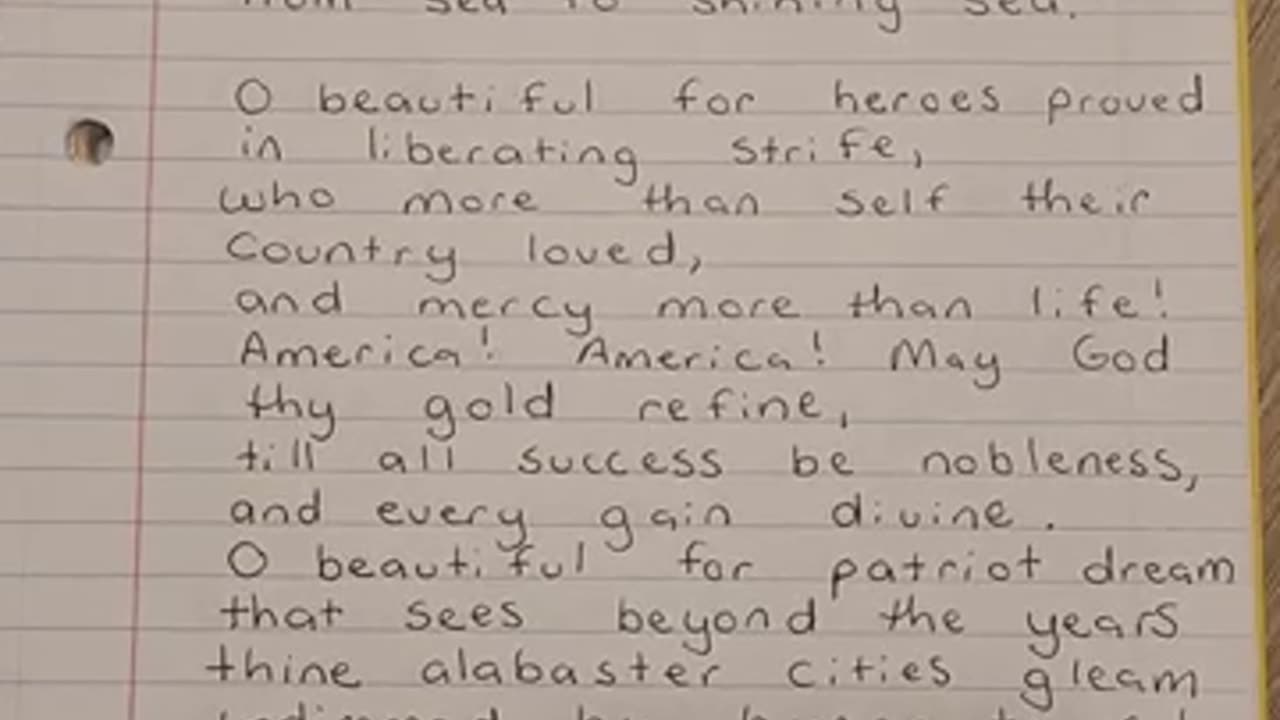 from sea to shining sea.
O beautiful for heroes proved
in liberating strife,
who more than self their
Country loved,
and mercy more than life!
America! America! May God
thy gold refine,
till all success be nobleness,
and every gain divine.
O beautiful for patriot dream
that sees beyond the years
thine alabaster cities gleam